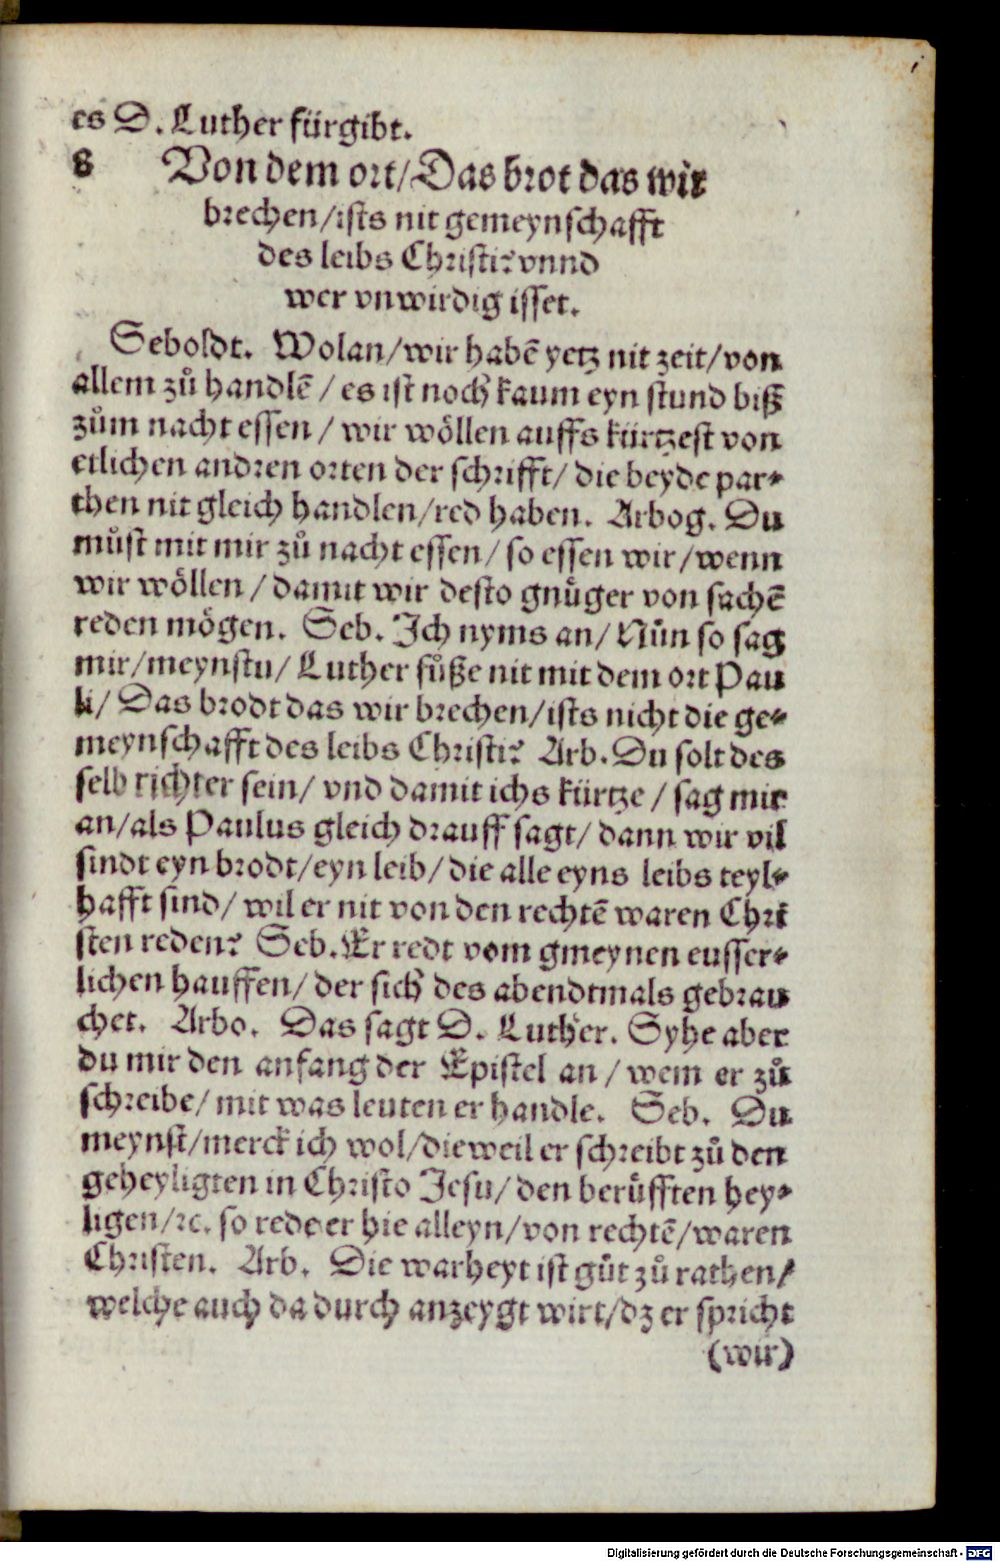 es D. Luther fürgibt.
8 Von dem ort/Das brot das wir
brechen/ists nit gemeynschafft
des leibs Christi? vnnd
wer vnwirdig isset.
Seboldt. Wolan/wir habē yetz nit zeit/von
allem zů handlē / es ist noch kaum eyn stund biß
zům nacht essen / wir wöllen auffs kürtzest von
etlichen andren orten der schrifft/ die beyde par⸗
then nit gleich handlen/red haben. Arbog. Du
můst mit mir zů nacht essen/ so essen wir/wenn
wir wöllen / damit wir desto gnůger von sachē
reden mögen. Seb. Ich nyms an/ Nůn so sag
mir/meynstu/ Luther fůße nit mit dem ort Pau
li/ Das brodt das wir brechen/ists nicht die ge⸗
meynschafft des leibs Christi? Arb. Du solt des
selb richter sein/ vnd damit ichs kürtze / sag mir
an/als Paulus gleich drauff sagt/ dann wir vil
sindt eyn brodt/eyn leib/ die alle eyns leibs teyl⸗
hafft sind/ wil er nit von den rechtē waren Chri
sten reden? Seb. Er redt vom gmeynen eusser⸗
lichen hauffen/ der sich des abendtmals gebrau
chet. Arbo. Das sagt D. Luther. Syhe aber
du mir den anfang der Epistel an / wem er zů
schreibe/ mit was leuten er handle. Seb. Du
meynst/merck ich wol/dieweil er schreibt zů den
geheyligten in Christo Jesu/ den berůfften hey⸗
ligen/ꝛc. so rede er hie alleyn/von rechtē/waren
Christen. Arb. Die warheyt ist gůt zů rathen/
welche auch da durch anzeygt wirt/dz er spricht
(wir)
Digitalisierung gefördert durch die Deutsche Forschungsgemeinschaft - DFG